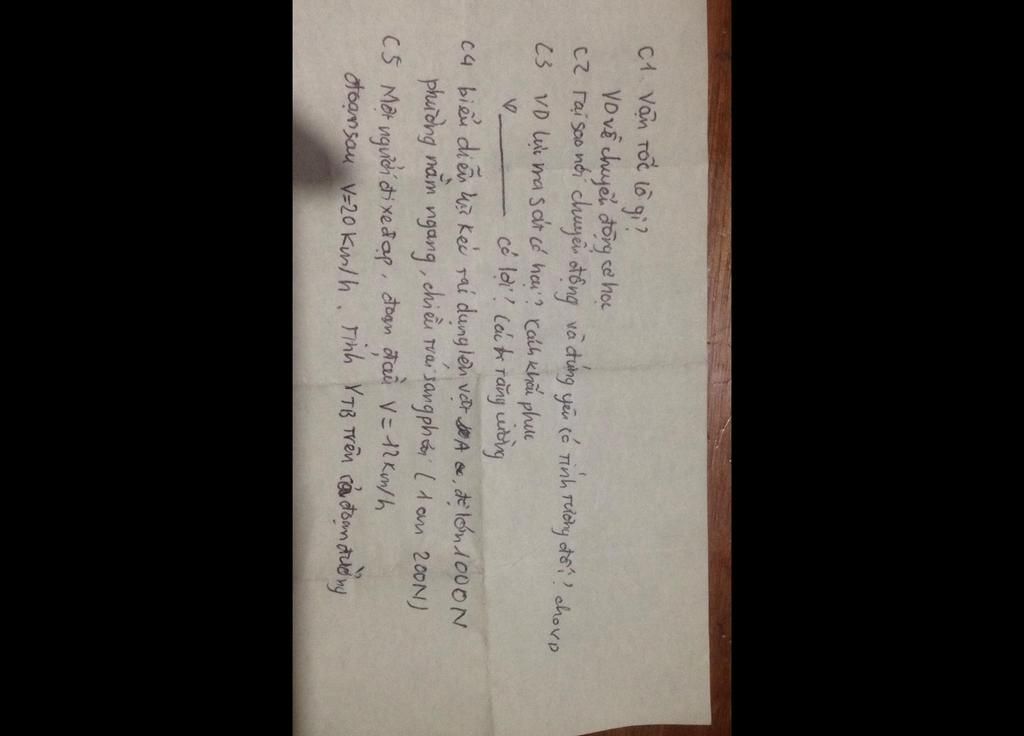 C1. Vận tốc là gì?
VD về chuyển động cơ học
C2 Tại sao nói chuyển động và đứng yên có tính tương đối? cho VD
C3 VD lực ma sát có hại? Cách khắc phục
V ——— có lợi? Cách tăng cường
C4 biểu diễn lực kéo tác dụng lên vật A độ lớn 1000N
phương nằm ngang, chiều trái sang phải (1cm 200N)
C5 Một người đi xe đạp, đoạn đầu V = 12km/h
đoạn sau V=20km/h. Tính VTB trên cả đoạn đường